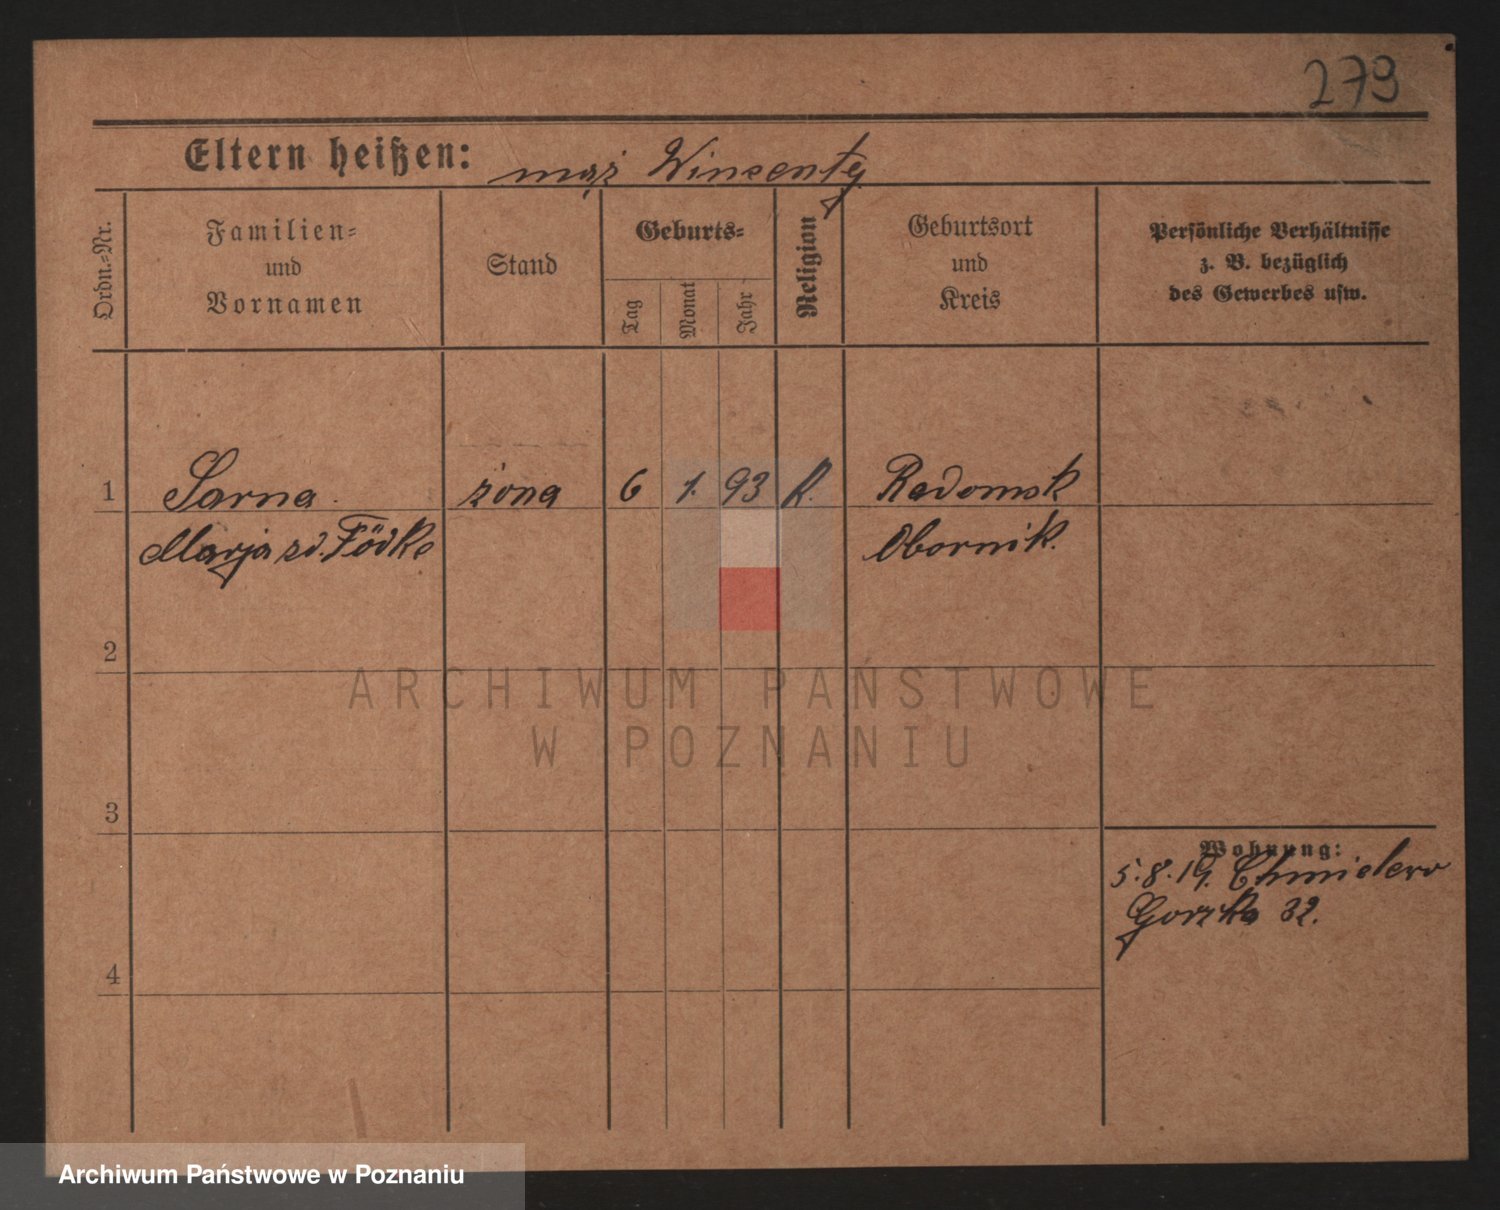 279
Eltern heißen: mąż Wincenty
Ordn.-Nr.
Familien-
und
Vornamen
Stand
Geburts-
Tag
Monat
Jahr
Religion
Geburtsort
und
Kreis
Persönliche Verhältnisse
z. B. bezüglich
des Gewerbes usw.
1 Sarna żona 6 1. 93 K. Radomsk
Marja zd. Födke Obornik.
2
3
4
Wohnung:
5.8.19.
Gorzka 32.
ARCHIWUM PAŃSTWOWE
W POZNANIU
Archiwum Państwowe w Poznaniu